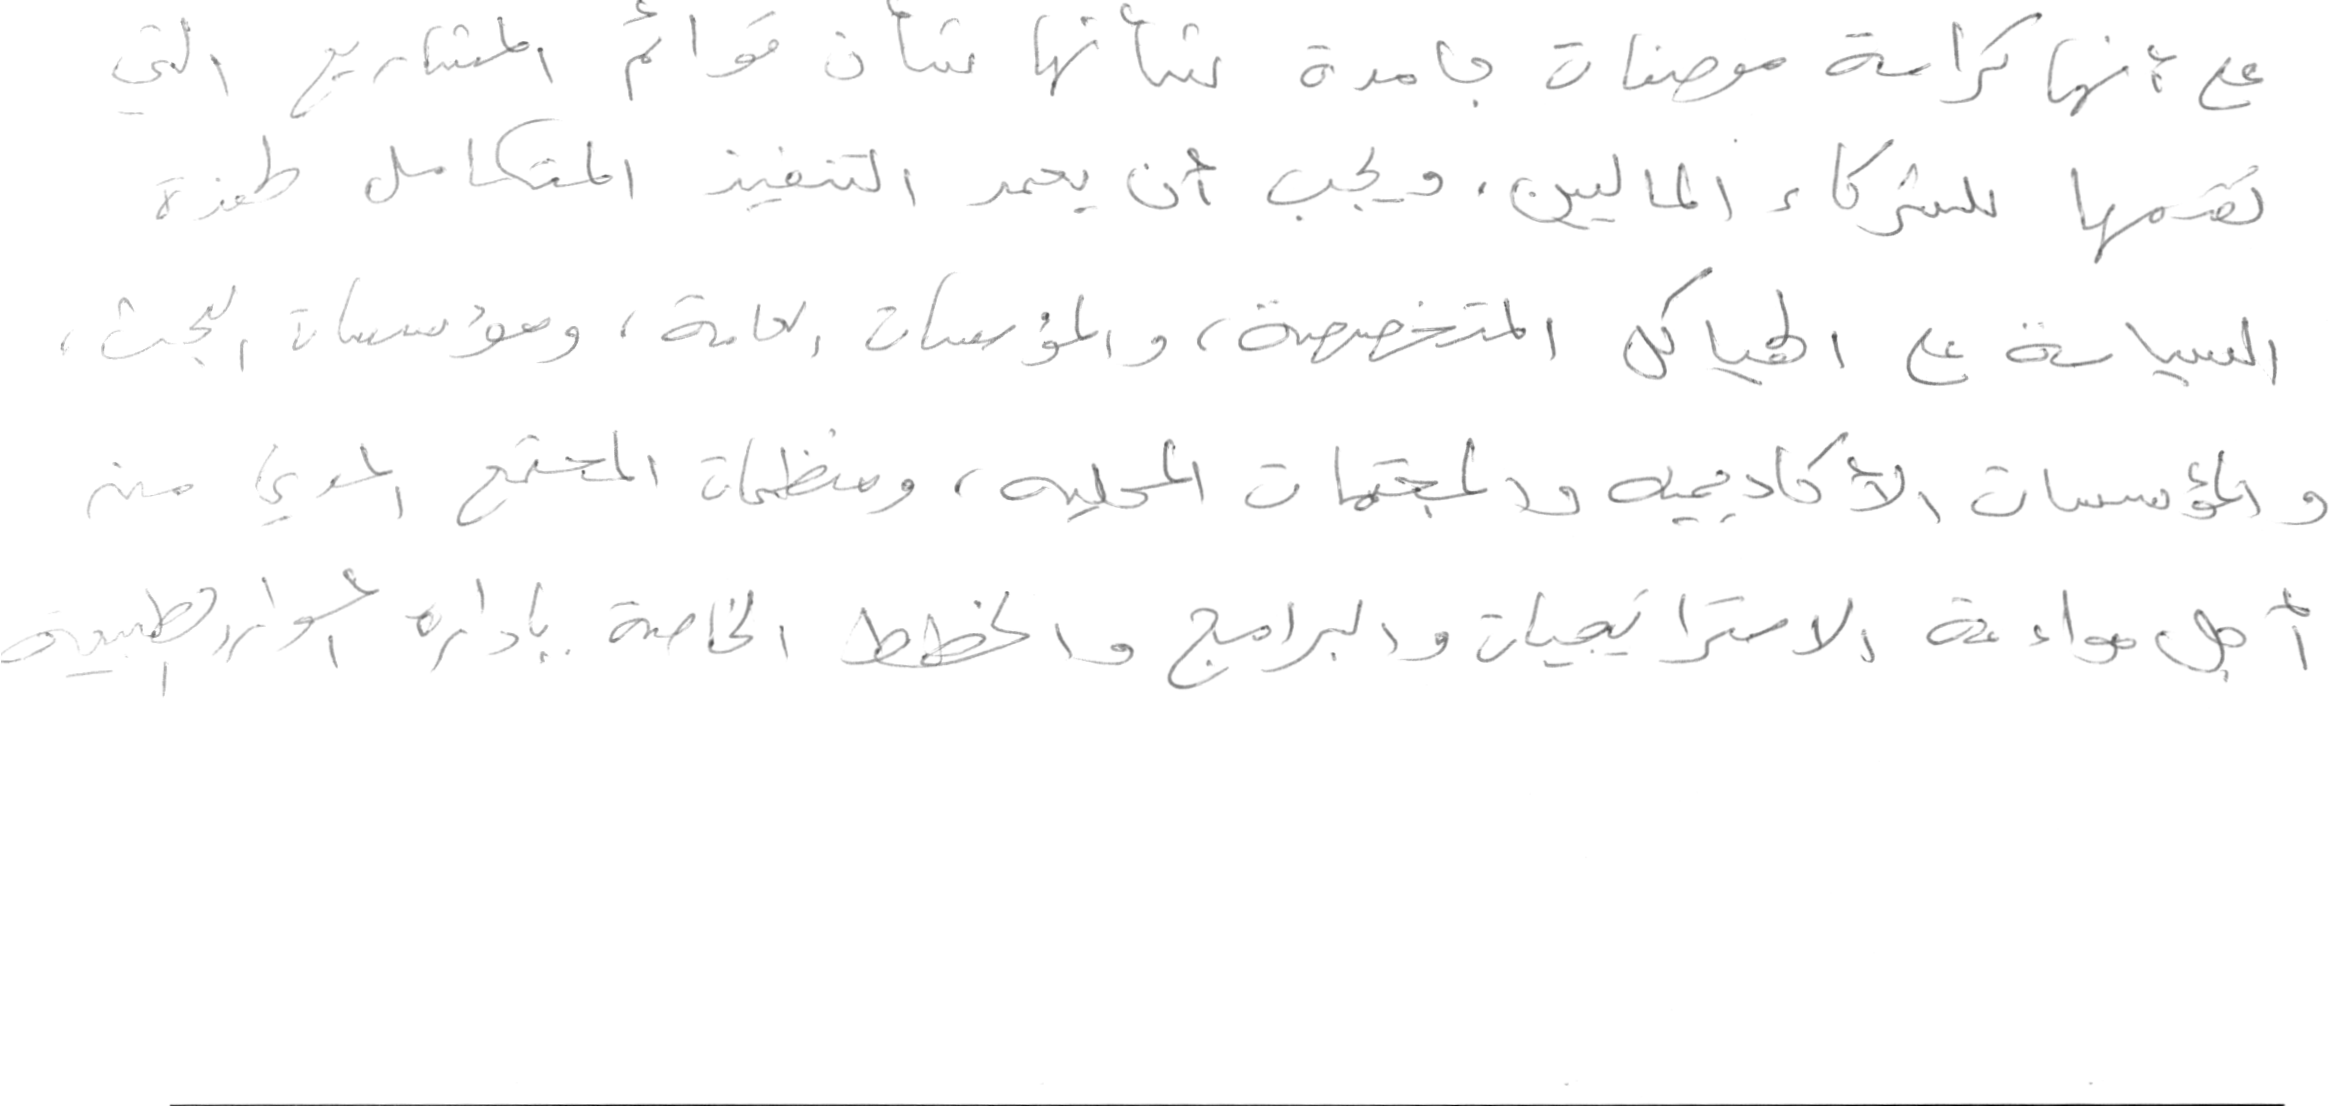 على أنها كراسة موصفات جامدة شأنها شأن قوائم المشاريع التي
نقدمها للشركاء الماليين، ويجب أن يعمد التنفيذ المتكامل لهذه
السياسة على الهياكل المتخصصة، والمؤسسات العامة، ومؤسسات البحث،
والمؤسسات الأكاديميه والمجتمعات المحليه، ومنظمات المجتمع المدني من
أجل مواءمة الاستراتيجيات والبرامج والخطط الخاصة بإداره الموارد الطبيعية